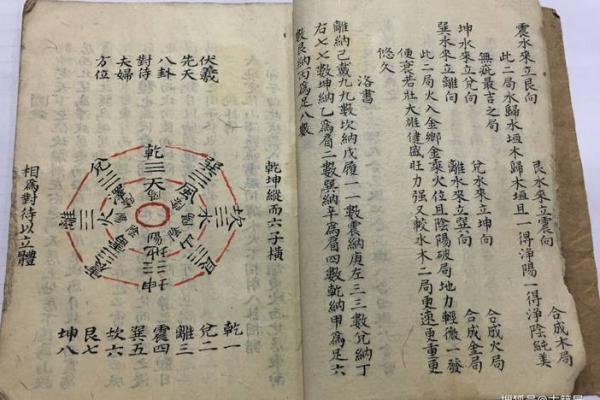 震水來立艮向 艮水來立震向 合成木局
此二局水歸水垣木歸木垣且一得淨陽一得淨陰純美
無疵最吉之局
坤水來立兌向 兌水來立坤向 合成火局
巽水來立離向 離水來立巽向 合成金局
此二局火入金鄉金乘火位且陰陽破局地力輕微一發
便衰若壯大雄健盛旺力強又較水木二局更速更重更
悠久
洛書
離納己戴九九數坎納戊履一一數震納庚左三三數兌納丁
右七七數坤納乙爲肩二數巽納辛爲肩四數乾納甲爲足六
數艮納丙爲足八數
乾坤縱而六子橫
伏羲
先天
八卦
對待
夫婦
方位
乾
天
巽
風
坎
水
艮
離
兌
相爲對待以立體
乾一
兌二
離三
震四
巽五
坎六
艮七
坤八